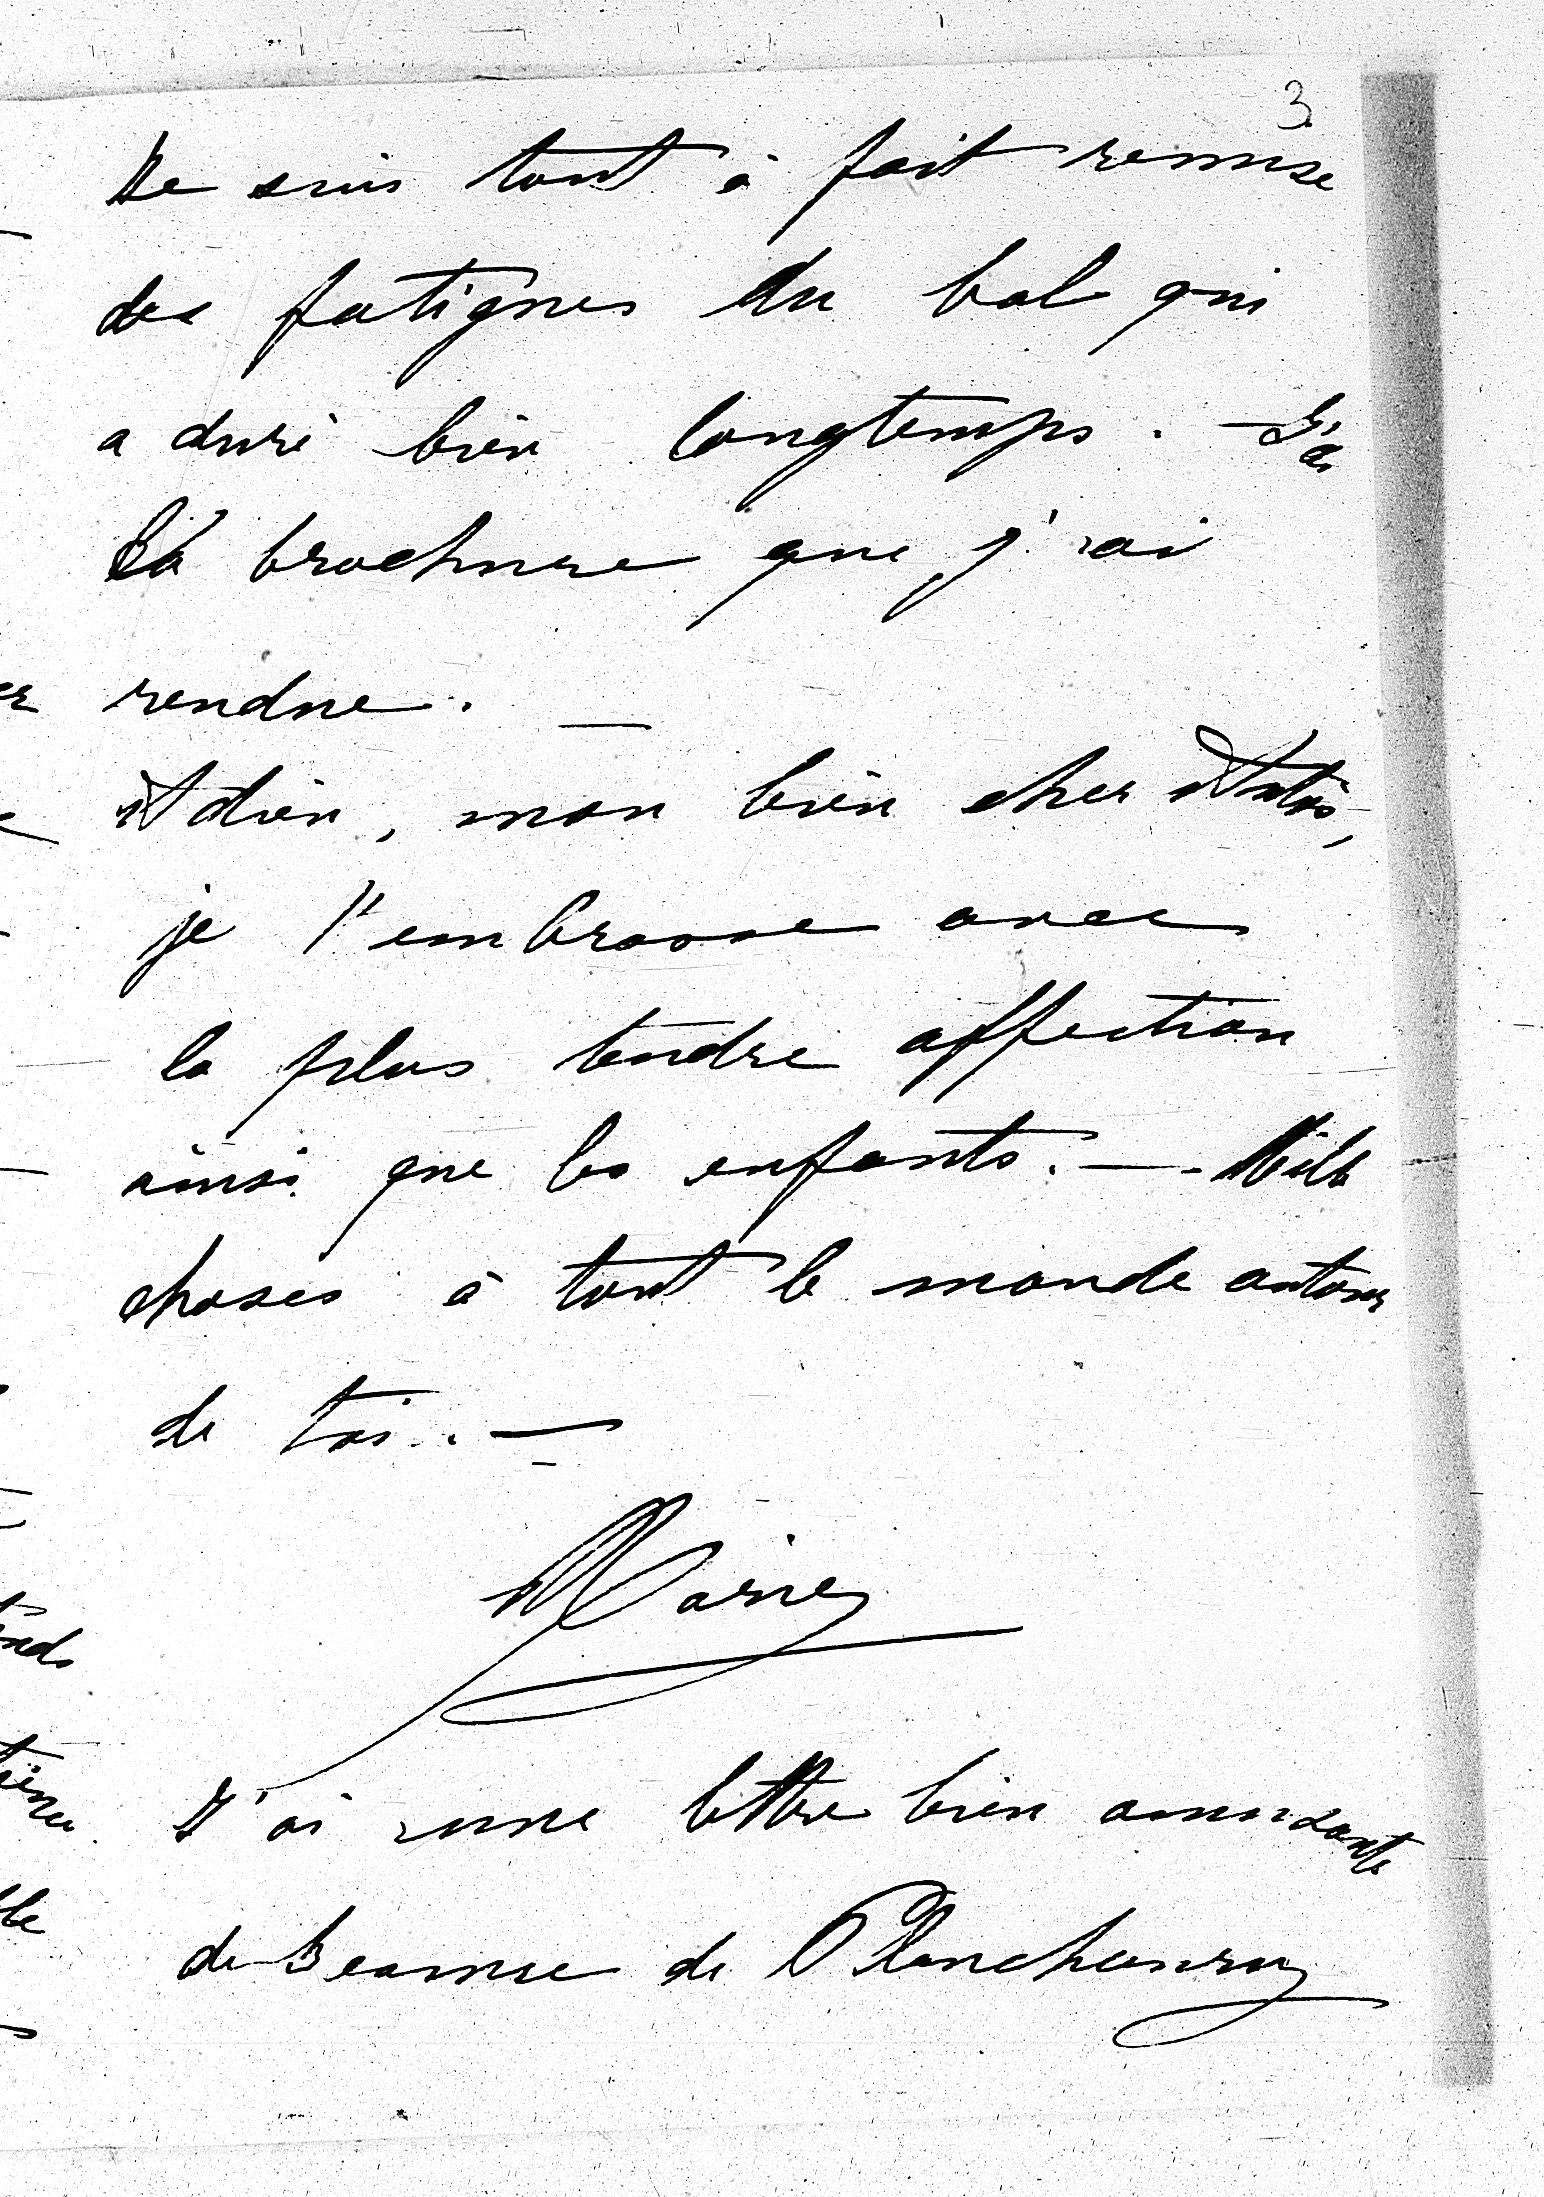 3
Je suis tout à fait remise
des fatigues du bal qui
a duré bien longtemps. — J'ai
lu la brochure que j'ai
rendue. —
Adieu, mon bien cher
je t'embrasse avec
la plus tendre affection
ainsi que les enfants. — Mille
choses à tout le monde autour
de toi. —
Marie
J'ai une lettre bien amusante
de Jeanne de